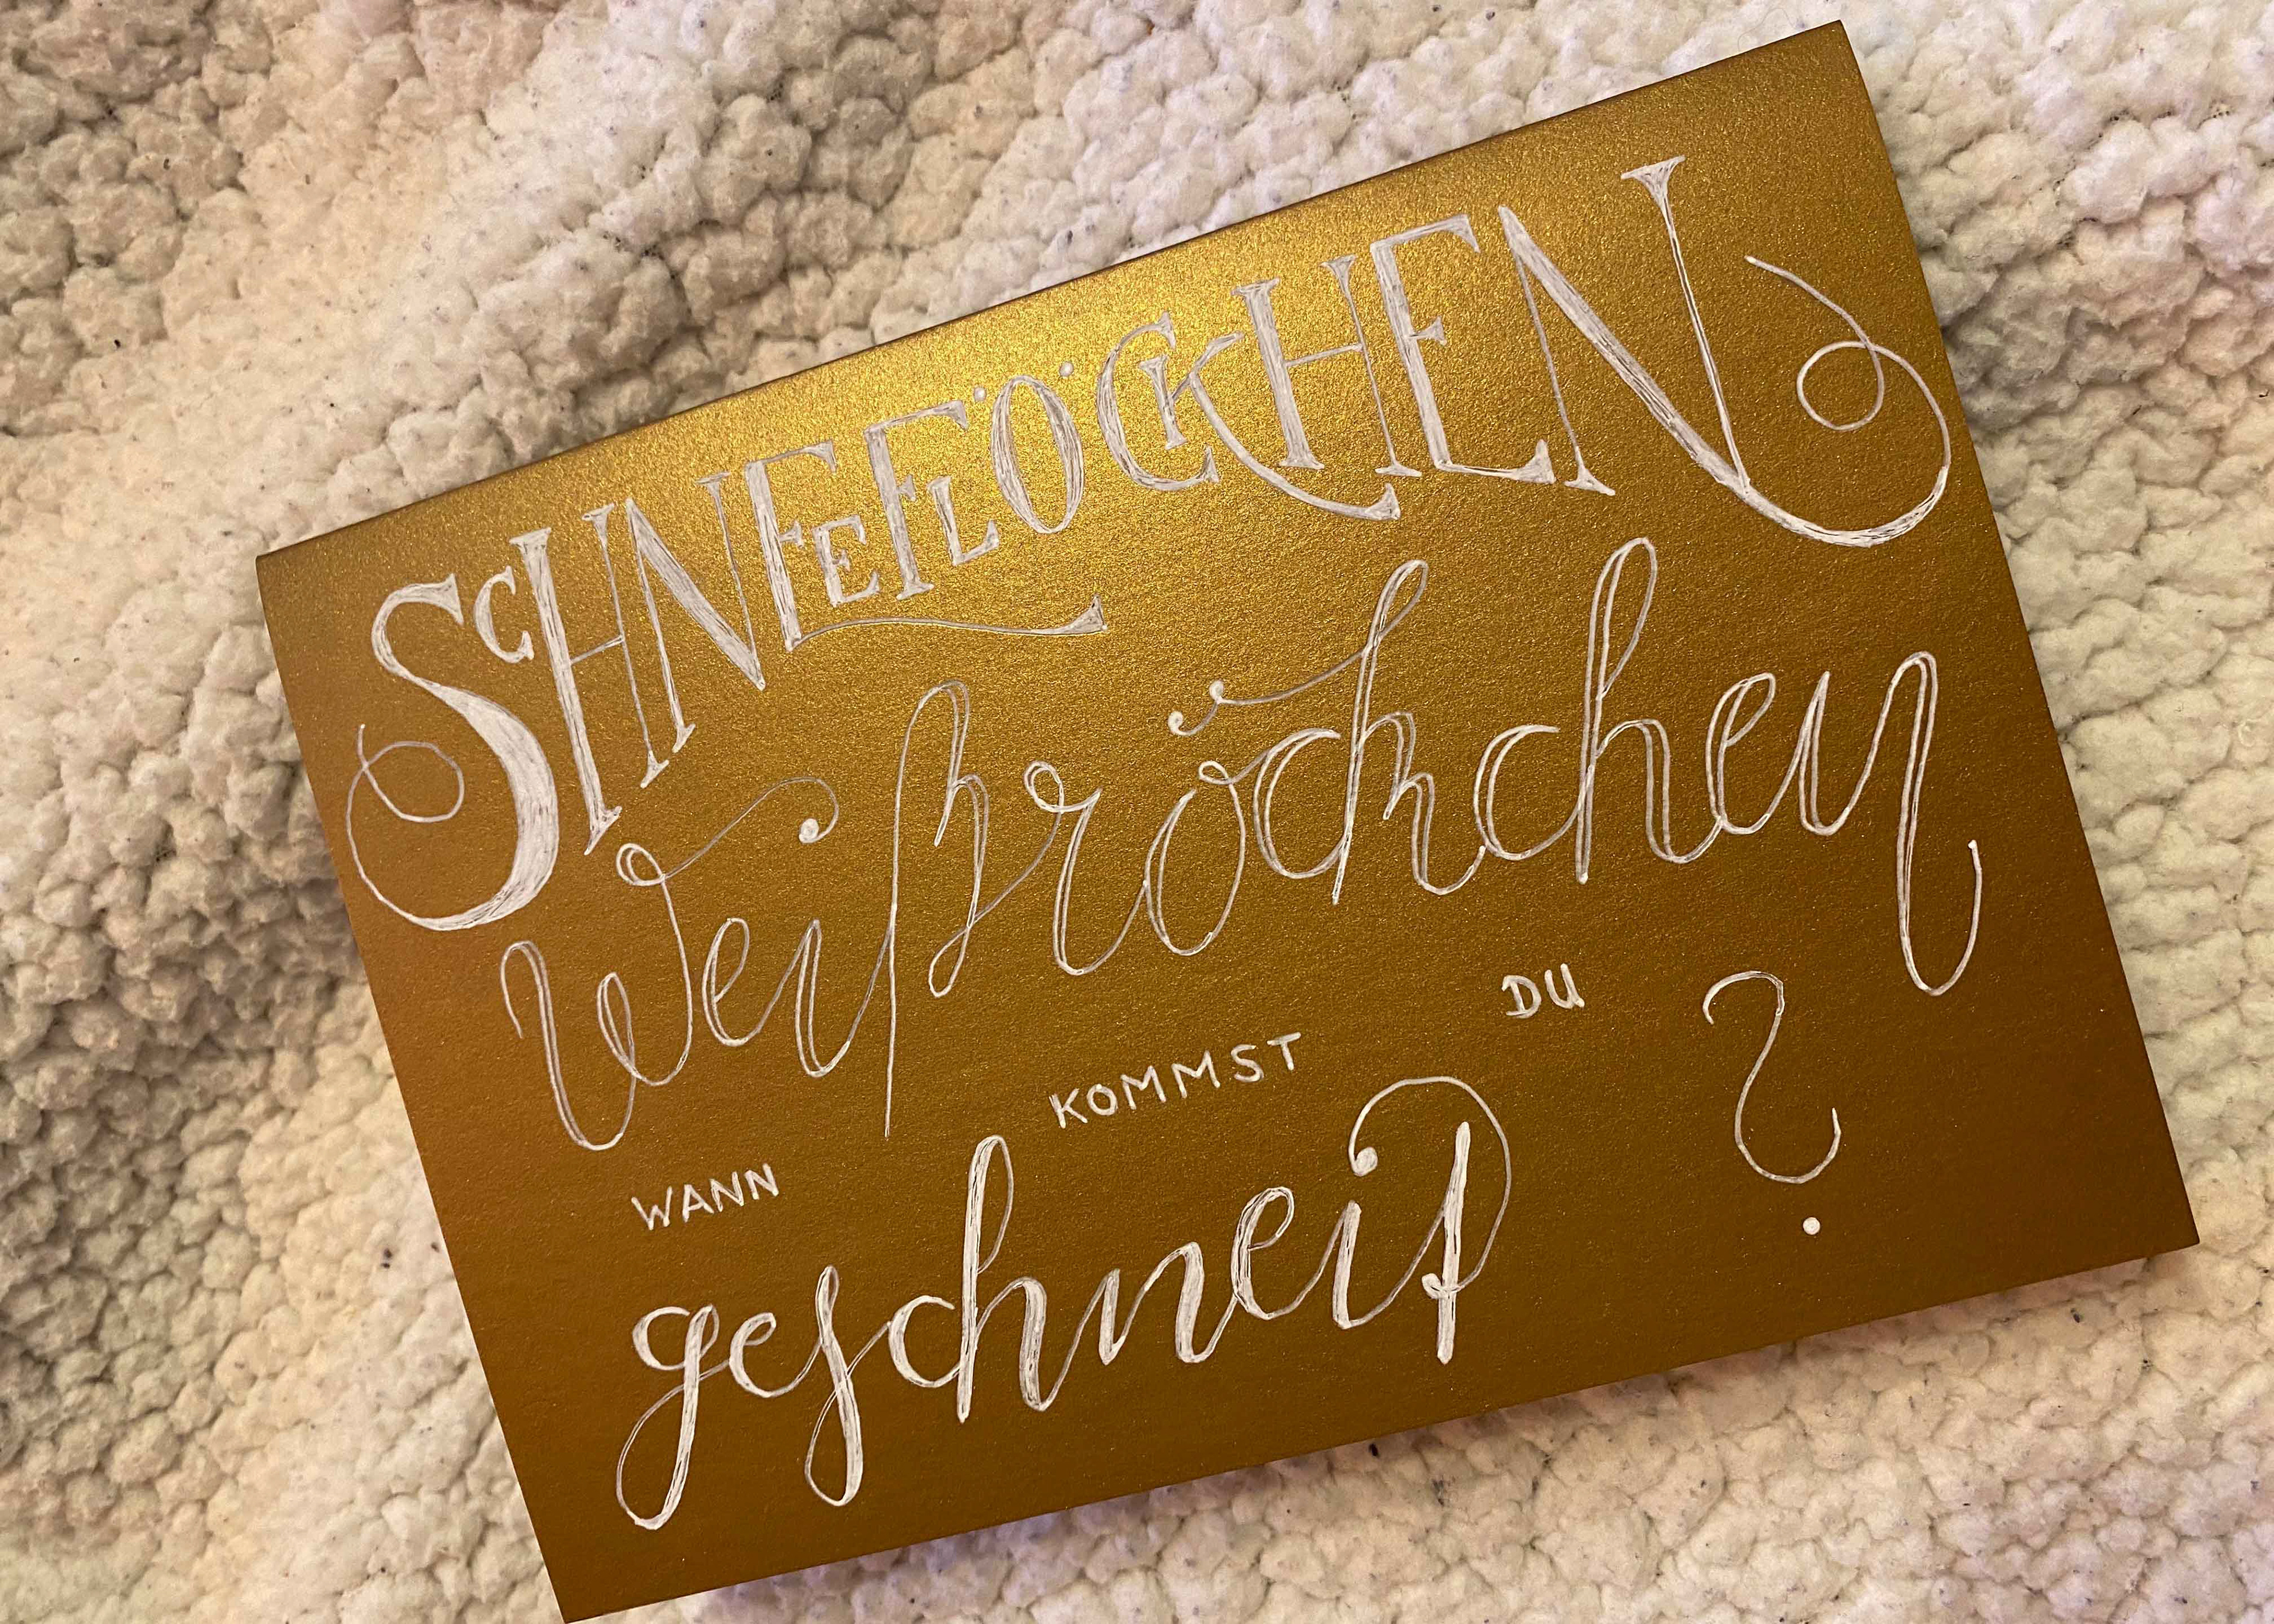 SCHNEEFLÖCKCHEN
Weißröckchen
WANN KOMMST DU
geschneit?